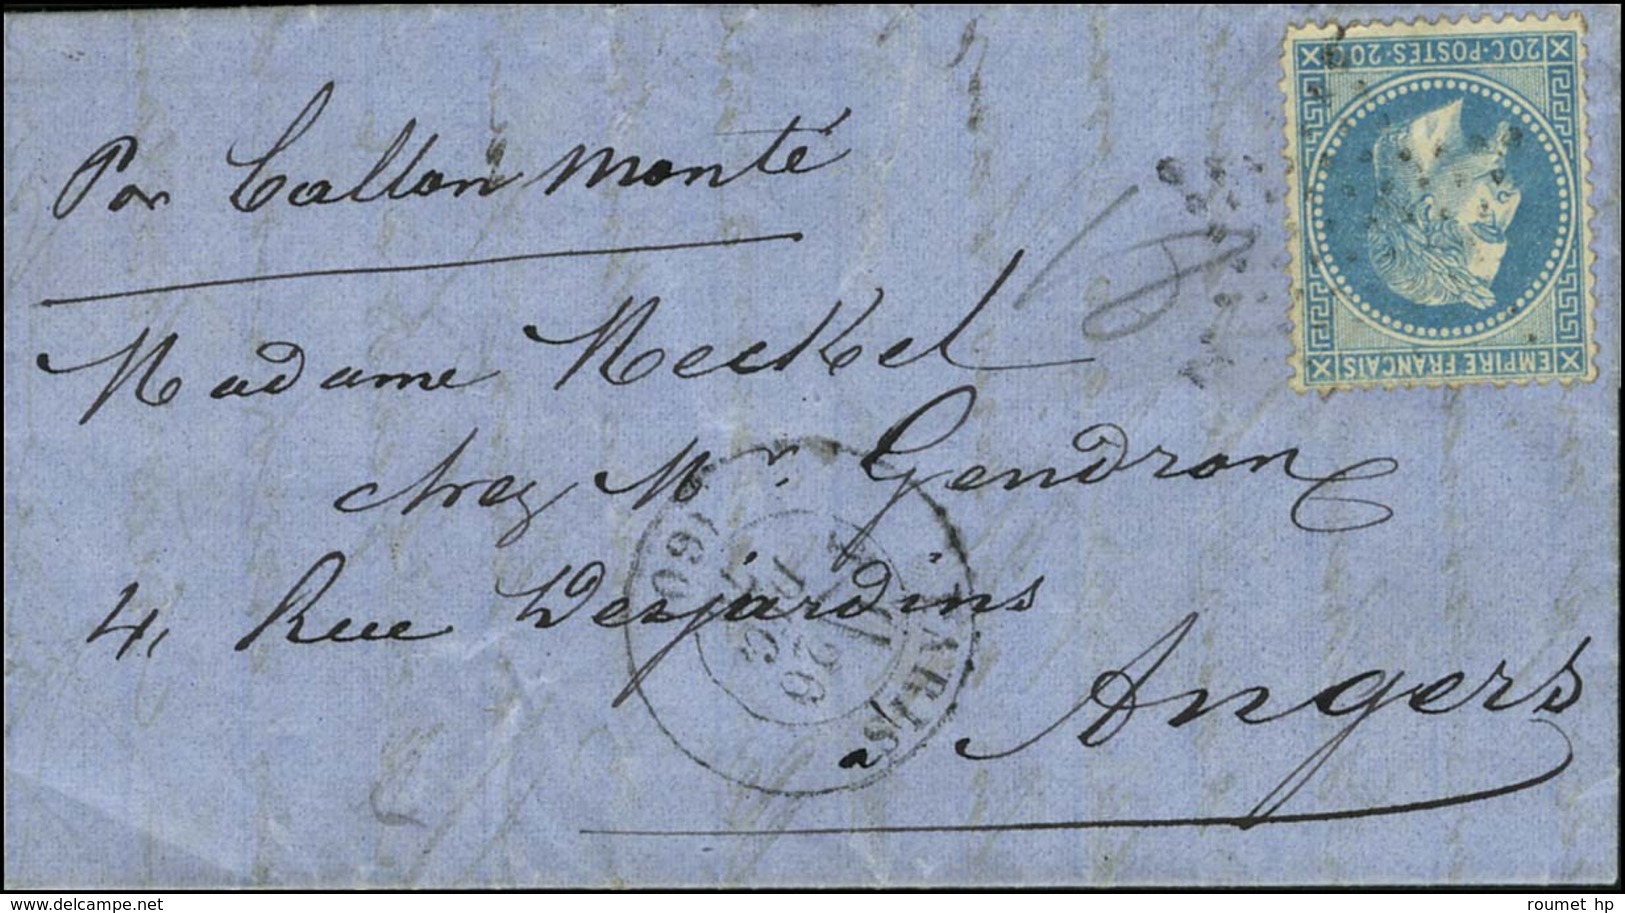 Par ballon monté
Madame Meckel
chez Mr. Gendron
4, Rue Desjardins
a Angers
20C·POSTES·20C
EMPIRE FRANÇAIS
PARIS
26
(60)
delcampe.net
roumet hp